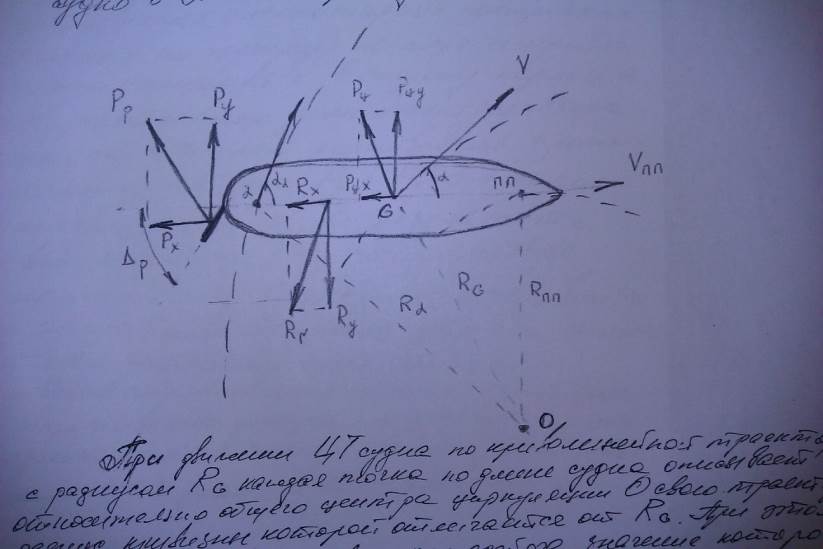 судно
V
Pр Pу Pψ Pψy
Vпп
α αλ Rx Pψx G α пп
Px
Δp
RG Rпп
Rα
Rr Ry
O
При движении ЦТ судна по криволинейной траекто
с радиусом RG каждая точка по длине судна описывает
относительно общего центра циркуляции O свою траект
кривизны которой отличается от RG. При этом
значение которо